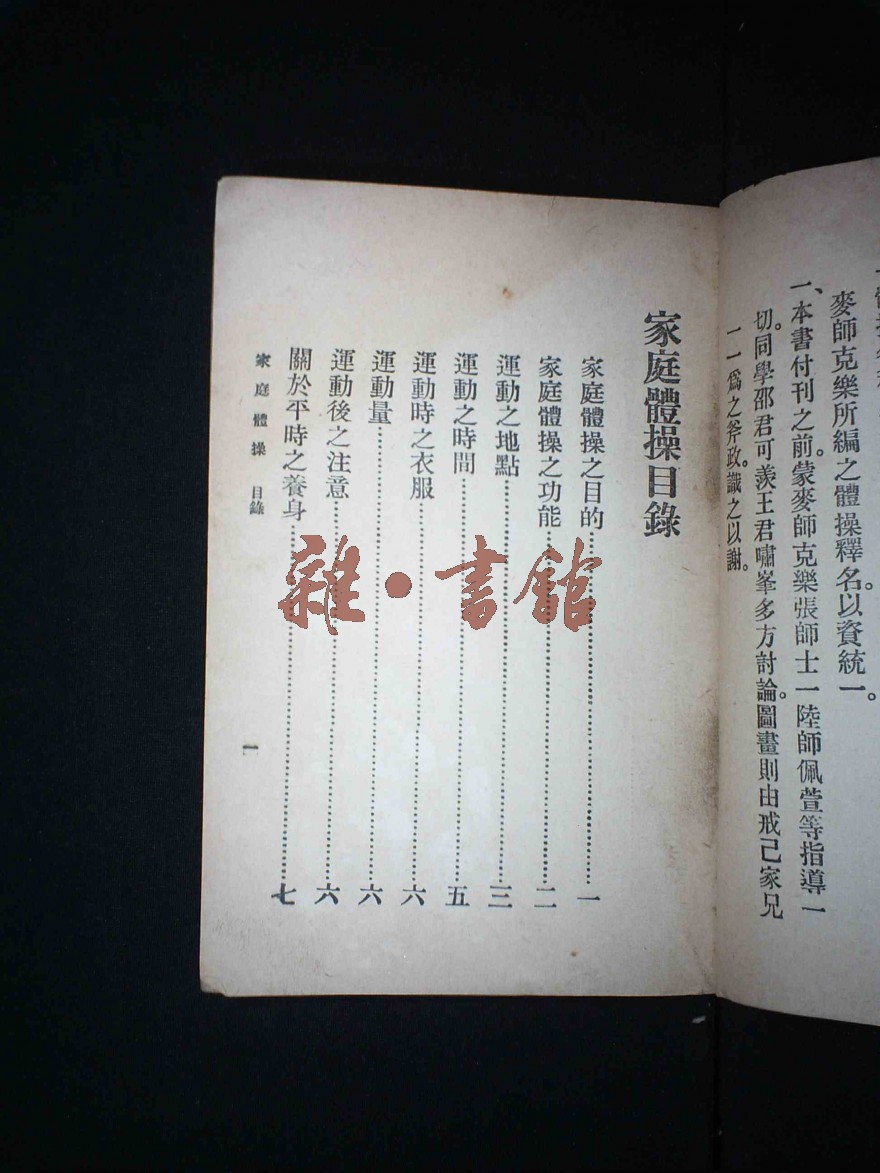 麥師克樂所編之體操釋名以資統一。
一、本書付刊之前。蒙麥師克樂張師士一陸師佩萱等指導一
切。同學邵君可羨王君嘯峯多方討論。圖畫則由戒己家兄
一一爲之斧政。識之以謝。
家庭體操目錄
家庭體操之目的……一
家庭體操之功能……二
運動之地點……三
運動之時間……五
運動時之衣服……六
運動量……六
運動後之注意……六
關於平時之養身……七
家庭體操 目錄
一
雜·書館